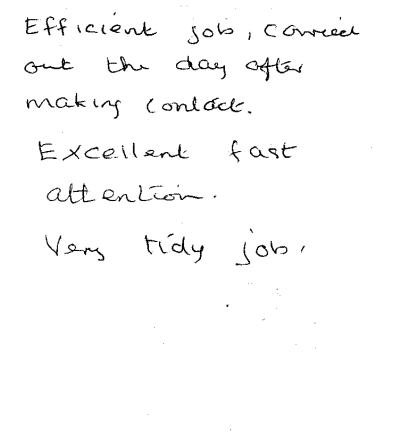 Efficient job, carried
out the day after
making contact.
Excellent fast
attention.
Very tidy job.